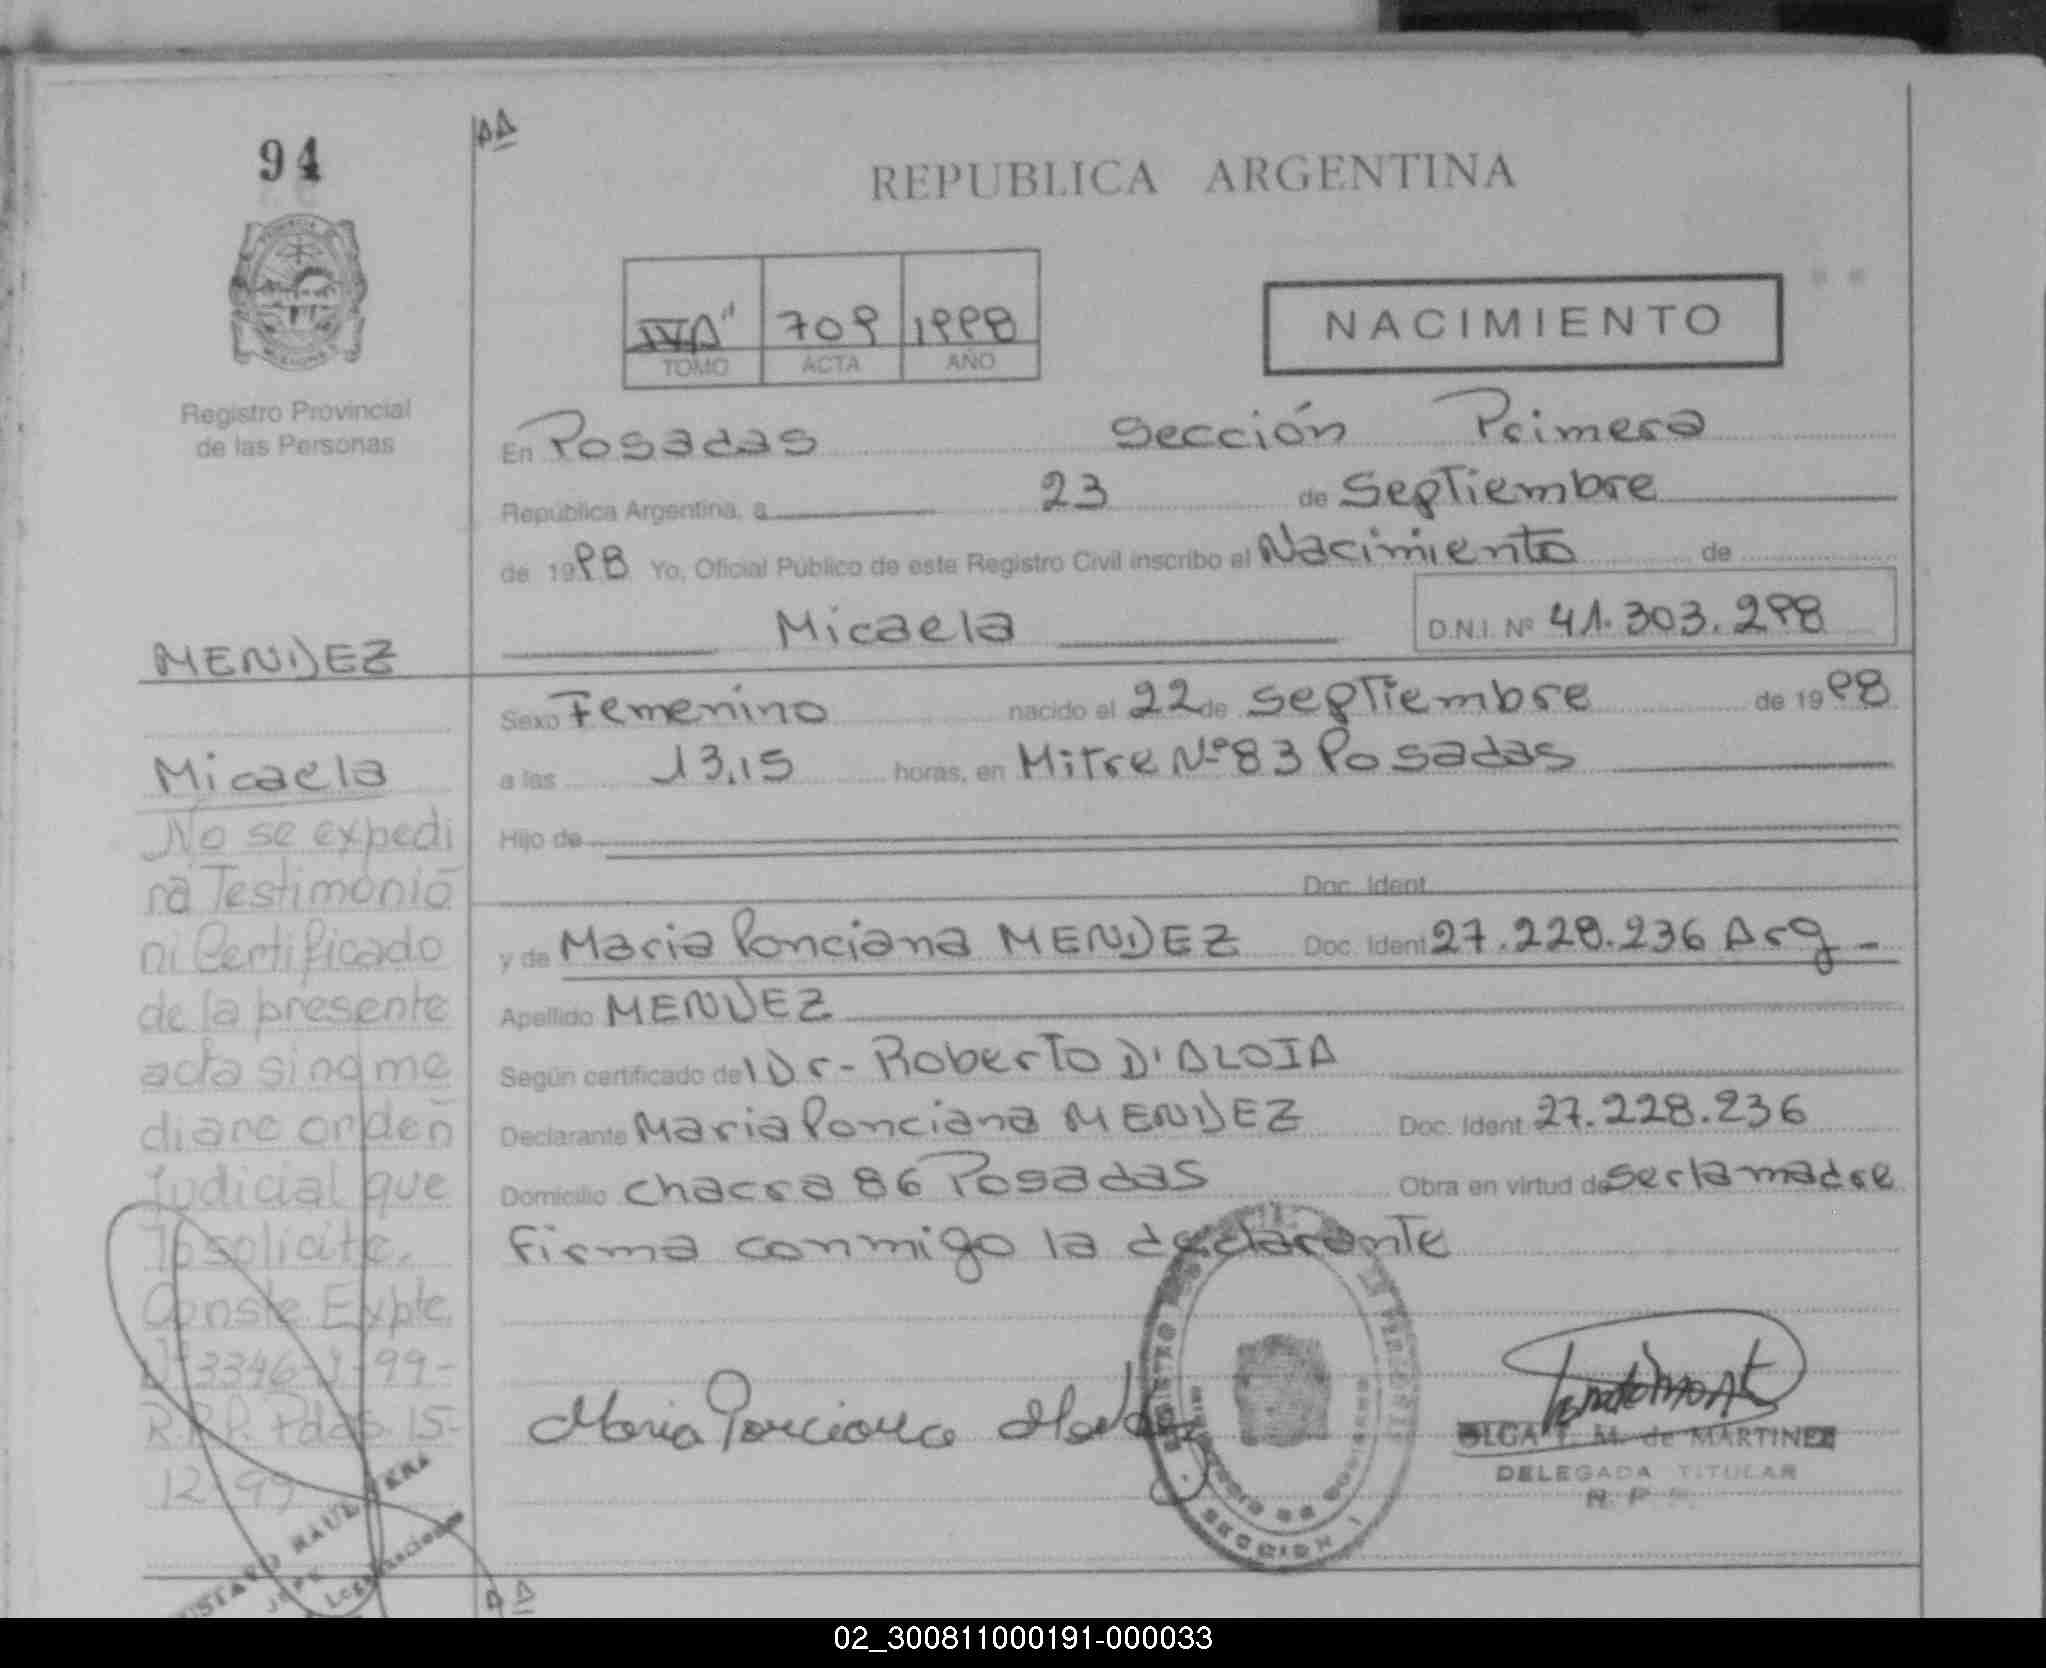 94
AA
REPUBLICA ARGENTINA
IVA" 709 1998
TOMO ACTA AÑO
NACIMIENTO
Registro Provincial
de las Personas
En Posadas Sección Primera
República Argentina, a 23 de Septiembre
de 1998 Yo, Oficial Público de este Registro Civil inscribo el Nacimiento de
Micaela D.N.I. Nº 41.303.298
MENDEZ
Sexo Femenino nacido el 22 de septiembre de 1998
Micaela
a las 13,15 horas, en Mitre Nº 83 Posadas
Hijo de
Doc. Ident.
y de Maria Ponciana MENDEZ Doc. Ident 27.228.236 Arg -
Apellido MENDEZ
Según certificado del Dr- Roberto D'ALOIA
Declarante Maria Ponciana MENDEZ Doc. Ident 27.228.236
Domicilio chacra 86 Posadas Obra en virtud de ser la madre
firma conmigo la declarante
No se expedi
rá Testimonio
ni Certificado
de la presente
acta sino me
diare orden
Judicial que
lo solicite.
Conste Expte.
Nº 3346-J-99-
R.P.P. Pdas 15-
12-99
Maria Ponciana
SECCION 1
OLGA T. M. de MARTINEZ
DELEGADA TITULAR
R. P.
RAUL
AA
02_300811000191-000033